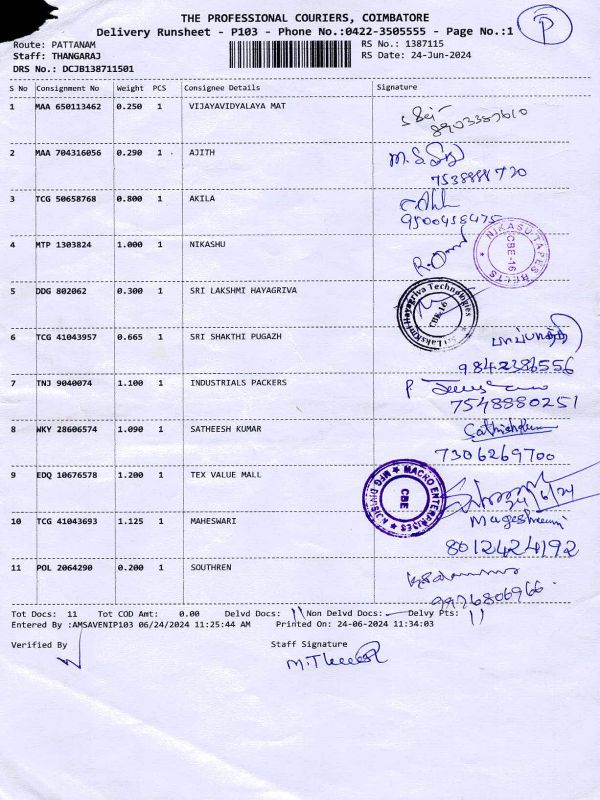 THE PROFESSIONAL COURIERS, COIMBATORE
Delivery Runsheet - P103 - Phone No.:0422-3505555 - Page No.:1
P
Route: PATTANAM
RS No.: 1387115
Staff: THANGARAJ
RS Date: 24-Jun-2024
DRS No.: DCJB138711501
S No Consignment No Weight PCS Consignee Details Signature
1 MAA 650113462 0.250 1 VIJAYAVIDYALAYA MAT
8903387610
2 MAA 704316056 0.290 1 AJITH
7538888720
3 TCG 50658768 0.800 1 AKILA
9500458475
4 MTP 1303824 1.000 1 NIKASHU
NIKASU TAPES BELTS
CBE-16
5 DDG 802062 0.300 1 SRI LAKSHMI HAYAGRIVA
Sri Lakshmi Hayagriva Technologies
CBE-16
6 TCG 41043957 0.665 1 SRI SHAKTHI PUGAZH
9842386556
7 TNJ 9040074 1.100 1 INDUSTRIALS PACKERS
7548880251
8 WKY 28606574 1.090 1 SATHEESH KUMAR
Sathishkumar
7306269700
9 EDQ 10676578 1.200 1 TEX VALUE MALL
MACRO ENTERPRISES
CBE
24/6/24
10 TCG 41043693 1.125 1 MAHESWARI
Mageshwari
8012424192
11 POL 2064290 0.200 1 SOUTHREN
9976806966
Tot Docs: 11 Tot COD Amt: 0.00 Delvd Docs: 11 Non Delvd Docs: Delvy Pts: 11
Entered By :AMSAVENIP103 06/24/2024 11:25:44 AM Printed On: 24-06-2024 11:34:03
Verified By Staff Signature